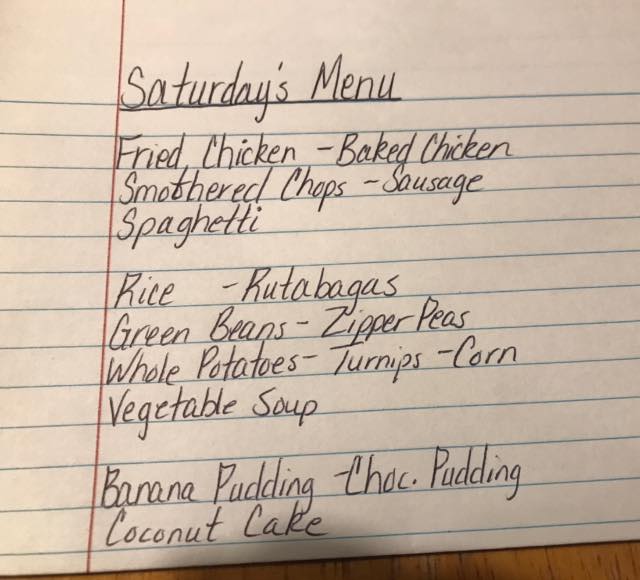 Saturday's Menu
Fried Chicken - Baked Chicken
Smothered Chops - Sausage
Spaghetti
Rice - Rutabagas
Green Beans - Zipper Peas
Whole Potatoes - Turnips - Corn
Vegetable Soup
Banana Pudding - Choc. Pudding
Coconut Cake